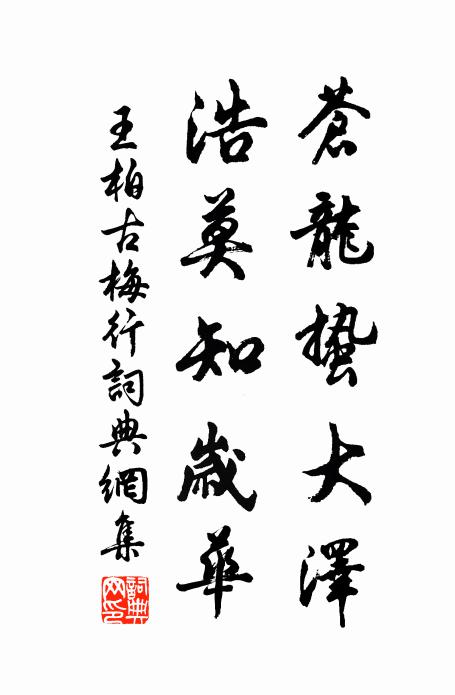 蒼龍蟄大澤
浩莫知歲華
王柏古梅行詞典網集
詞典網印